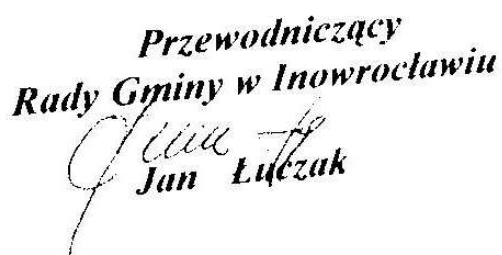 Przewodniczący
Rady Gminy w Inowrocławiu
Jan Łuczak